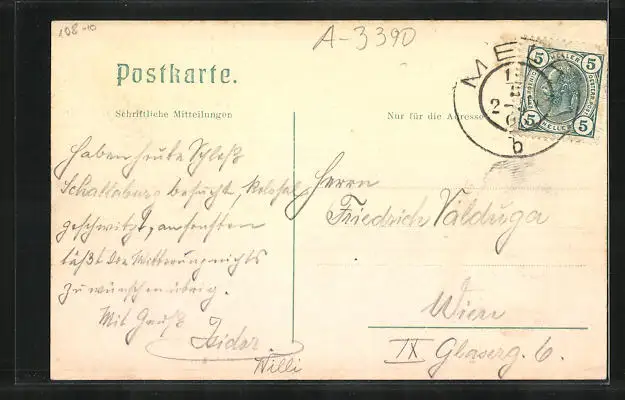 108-10
A-3390
Postkarte.
Schriftliche Mitteilungen
Nur für die Adresse
MEL
b
5 HELLER 5
5 HELLER 5
Haben heute Schloß
Schallaburg besucht, kolossal
geschwitzt, ansonsten
läßt die Witterung nichts
zu wünschen übrig.
Mit Gruß Isidor
Willi
Herrn
Friedrich Valduga
Wien
IX Glaserg. 6.